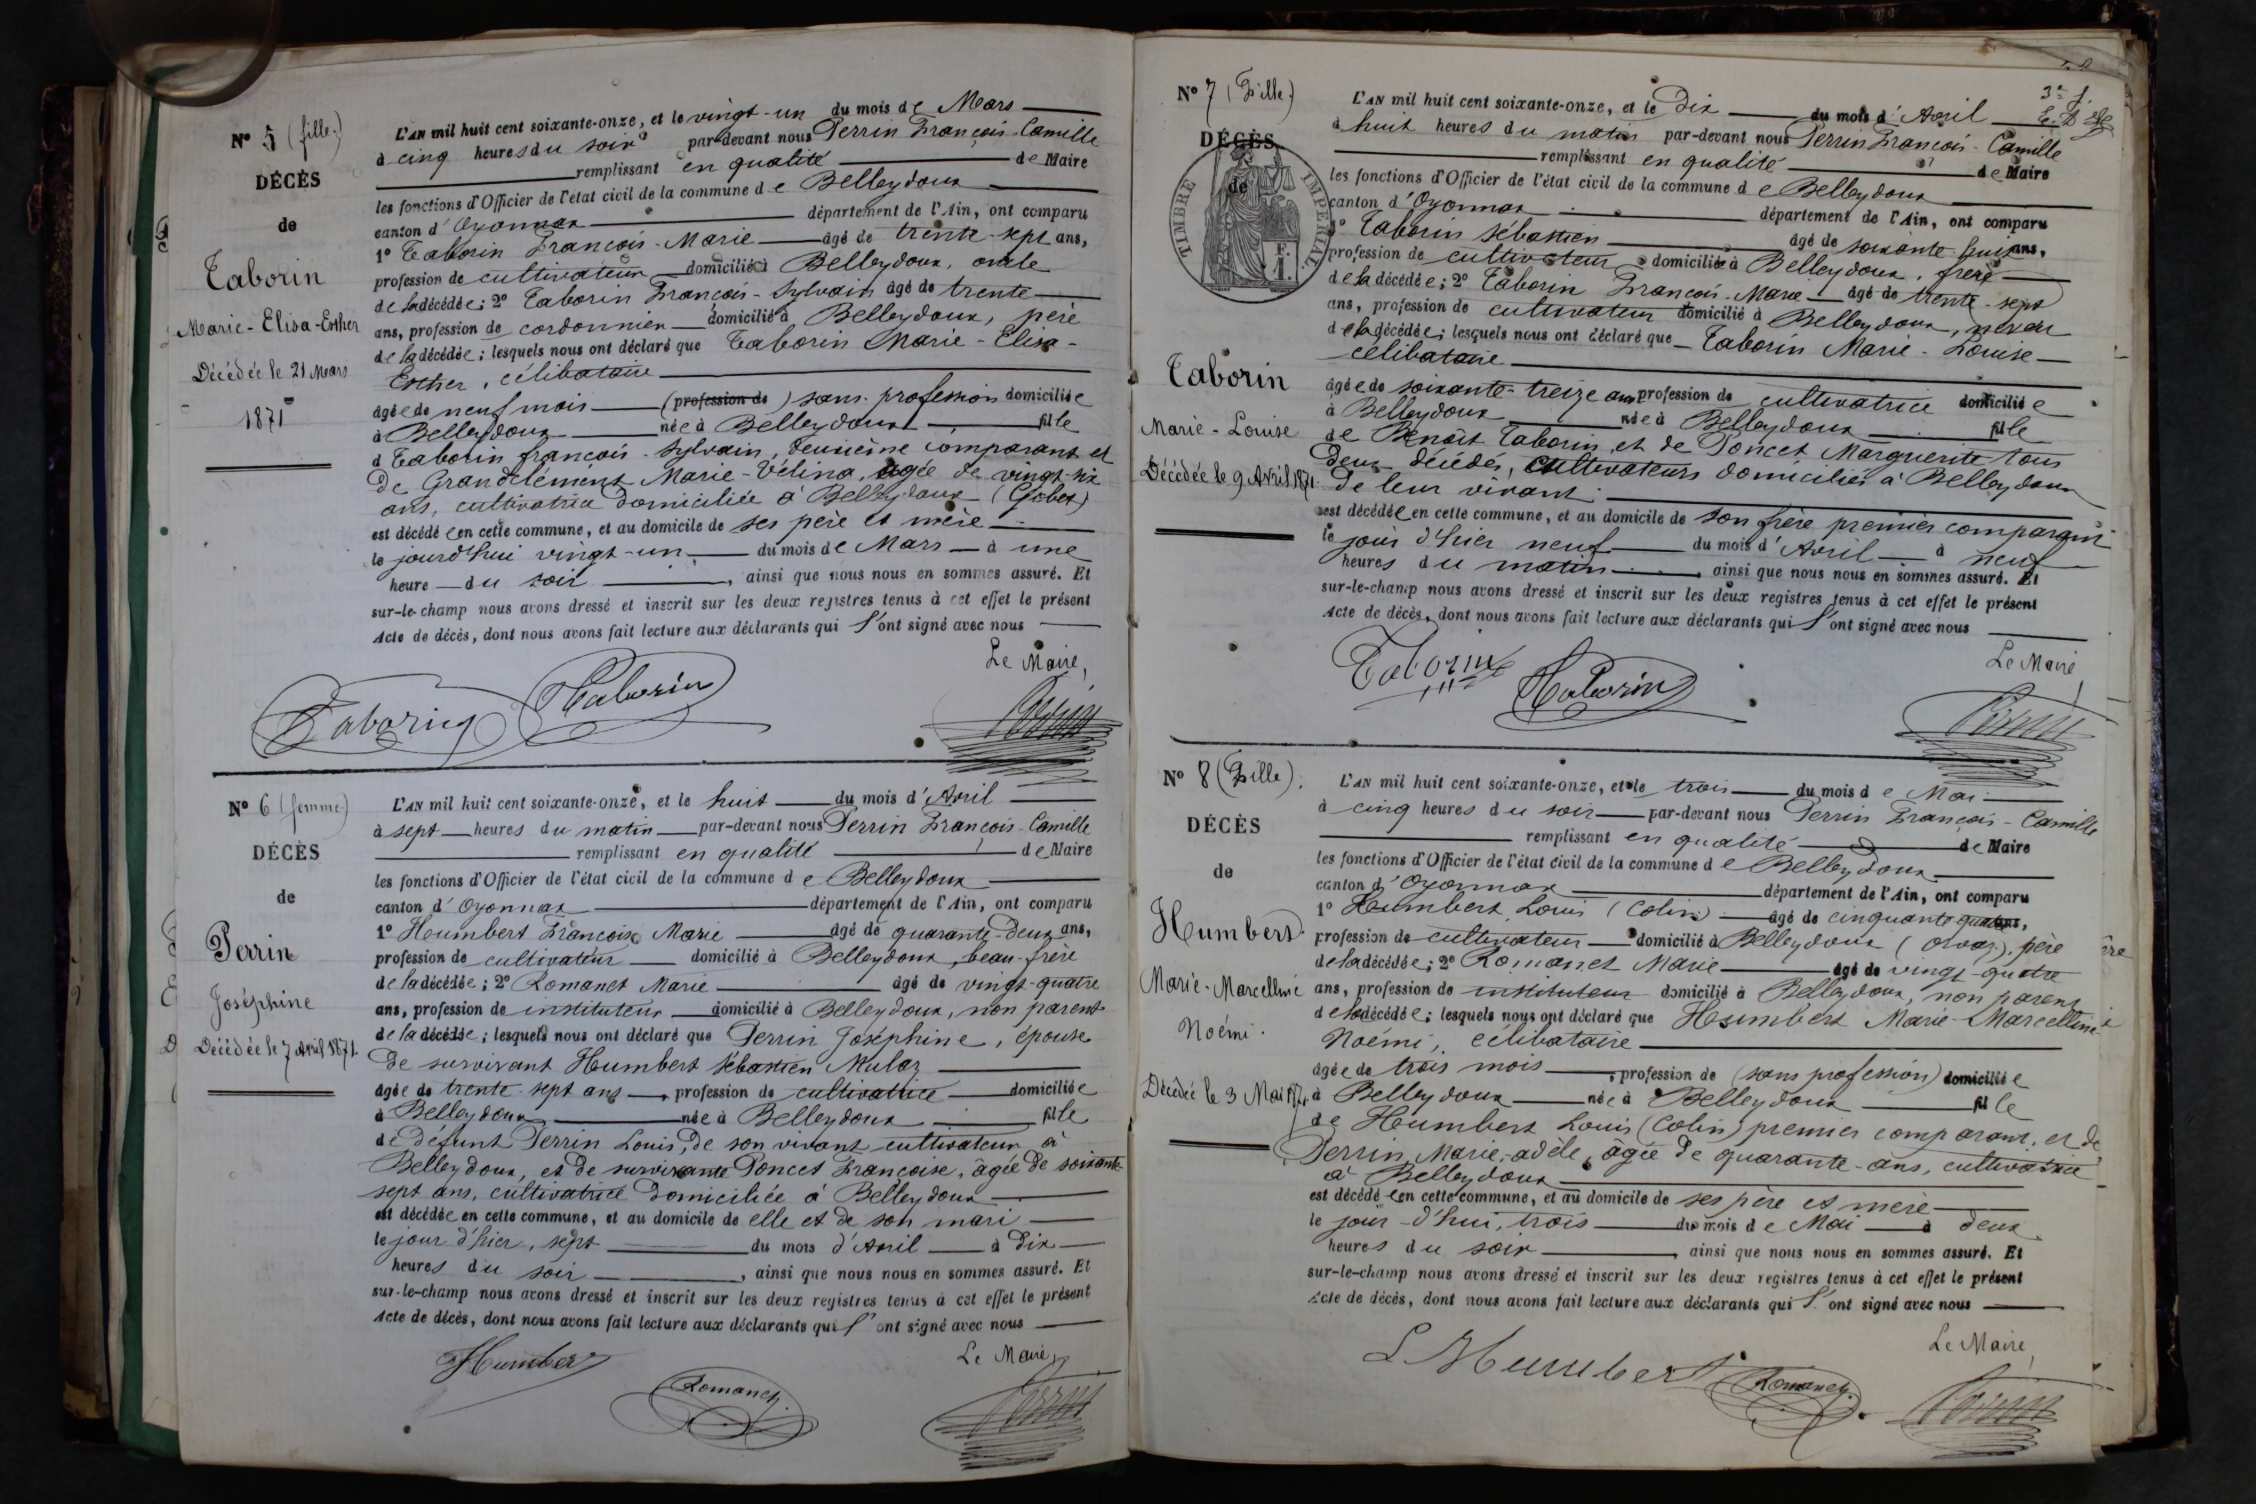 N° 5 (fille)
DÉCÈS
de
Taborin
Marie-Elisa-Esther
Décédée le 21 Mars
1871
L'AN mil huit cent soixante-onze, et le vingt-un du mois de Mars
à cinq heures du soir par-devant nous Perrin François-Camille
remplissant en qualité de Maire
les fonctions d'Officier de l'état civil de la commune de Belleydoux
canton d'Oyonnax département de l'Ain, ont comparu
1° Taborin François-Marie âgé de trente-sept ans,
profession de cultivateur domicilié à Belleydoux, oncle
de la décédée; 2° Taborin François-Sylvain âgé de trente
ans, profession de cordonnier domicilié à Belleydoux, père
de la décédée; lesquels nous ont déclaré que Taborin Marie-Elisa-
Esther, célibataire
âgée de neuf mois (profession de) sans profession domiciliée
à Belleydoux née à Belleydoux fille
d Taborin françois-Sylvain, deuxième comparant et
de Grandclément Marie-Vélina, agée de vingt-six
ans, cultivatrice domiciliée à Belleydoux (Gobet)
est décédée en cette commune, et au domicile de ses père et mère
le jourd'hui vingt-un du mois de Mars à une
heure du soir, ainsi que nous nous en sommes assuré. Et
sur-le-champ nous avons dressé et inscrit sur les deux registres tenus à cet effet le présent
Acte de décès, dont nous avons fait lecture aux déclarants qui l'ont signé avec nous
Le Maire,
Taborin Taborin Perrin
N° 6 (femme)
DÉCÈS
de
Perrin
Joséphine
Décédée le 7 Avril 1871.
L'AN mil huit cent soixante-onze, et le huit du mois d'Avril
à sept heures du matin par-devant nous Perrin François-Camille
remplissant en qualité de Maire
les fonctions d'Officier de l'état civil de la commune de Belleydoux
canton d'Oyonnax département de l'Ain, ont comparu
1° Humbert François Marie âgé de quarante-deux ans,
profession de cultivateur domicilié à Belleydoux, beau-frère
de la décédée; 2° Romanet Marie âgé de vingt-quatre
ans, profession de instituteur domicilié à Belleydoux, non parent
de la décédée; lesquels nous ont déclaré que Perrin Joséphine, épouse
de survivant Humbert Sébastien Mulaz
âgée de trente-sept ans, profession de cultivatrice domiciliée
à Belleydoux née à Belleydoux fille
de défunt Perrin Louis, de son vivant cultivateur à
Belleydoux, et de survivante Poncet Françoise, âgée de soixante-
sept ans, cultivatrice domiciliée à Belleydoux
est décédée en cette commune, et au domicile de elle et de son mari
le jour d'hier, sept du mois d'Avril à dix
heures du soir, ainsi que nous nous en sommes assuré. Et
sur-le-champ nous avons dressé et inscrit sur les deux registres tenus à cet effet le présent
Acte de décès, dont nous avons fait lecture aux déclarants qui l'ont signé avec nous
Le Maire,
Humbert Romanet Perrin
3e f.
N° 7 (Fille)
DÉCÈS
de
TIMBRE IMPÉRIAL
F.
1.
Taborin
Marie-Louise
Décédée le 9 Avril 1871.
L'AN mil huit cent soixante-onze, et le Dix du mois d'Avril
à huit heures du matin par-devant nous Perrin François-Camille
remplissant en qualité de Maire
les fonctions d'Officier de l'état civil de la commune de Belleydoux
canton d'Oyonnax département de l'Ain, ont comparu
1° Taborin Sébastien âgé de soixante-huit ans,
profession de cultivateur domicilié à Belleydoux, frère
de la décédée; 2° Taborin François-Marie âgé de trente-sept
ans, profession de cultivateur domicilié à Belleydoux, neveu
de la décédée; lesquels nous ont déclaré que Taborin Marie-Louise
célibataire
âgée de soixante-treize ans profession de cultivatrice domiciliée
à Belleydoux née à Belleydoux fille
de Benoît Taborin et de Poncet Marguerite tous
deux décédés, cultivateurs domiciliés à Belleydoux
de leur vivant
est décédée en cette commune, et au domicile de son frère premier comparant
le jour d'hier neuf du mois d'Avril à neuf
heures du matin, ainsi que nous nous en sommes assuré. Et
sur-le-champ nous avons dressé et inscrit sur les deux registres tenus à cet effet le présent
Acte de décès, dont nous avons fait lecture aux déclarants qui l'ont signé avec nous
Le Maire,
Taborin Taborin Perrin
N° 8 (Fille).
DÉCÈS
de
Humbert
Marie-Marcelline
Noémi.
Décédée le 3 Mai 1871
L'AN mil huit cent soixante-onze, et le trois du mois de Mai
à cinq heures du soir par-devant nous Perrin François-Camille
remplissant en qualité de Maire
les fonctions d'Officier de l'état civil de la commune de Belleydoux
canton d'Oyonnax département de l'Ain, ont comparu
1° Humbert Louis (Colin) âgé de cinquante-quatre ans,
profession de cultivateur domicilié à Belleydoux (Orvaz), père
de la décédée; 2° Romanet Marie âgé de vingt-quatre
ans, profession de instituteur domicilié à Belleydoux, non parent
de la décédée; lesquels nous ont déclaré que Humbert Marie-Marcelline
Noémi, célibataire
âgée de trois mois, profession de (sans profession) domiciliée
à Belleydoux née à Belleydoux fille
de Humbert Louis (Colin) premier comparant, et de
Perrin Marie-adèle, âgée de quarante-ans, cultivatrice
à Belleydoux
est décédée en cette commune, et au domicile de ses père et mère
le jour-d'hui, trois du mois de Mai à deux
heures du soir, ainsi que nous nous en sommes assuré. Et
sur-le-champ nous avons dressé et inscrit sur les deux registres tenus à cet effet le présent
Acte de décès, dont nous avons fait lecture aux déclarants qui l'ont signé avec nous
Le Maire,
L Humbert Romanet Perrin